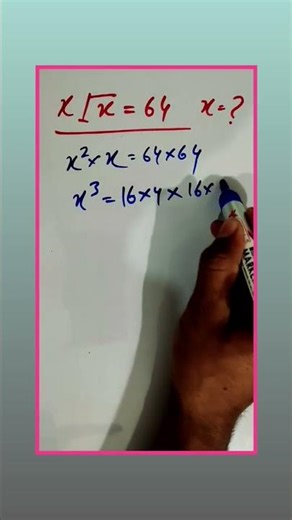 x√x = 64 x = ?
x² × x = 64 × 64
x³ = 16 × 4 × 16 ×